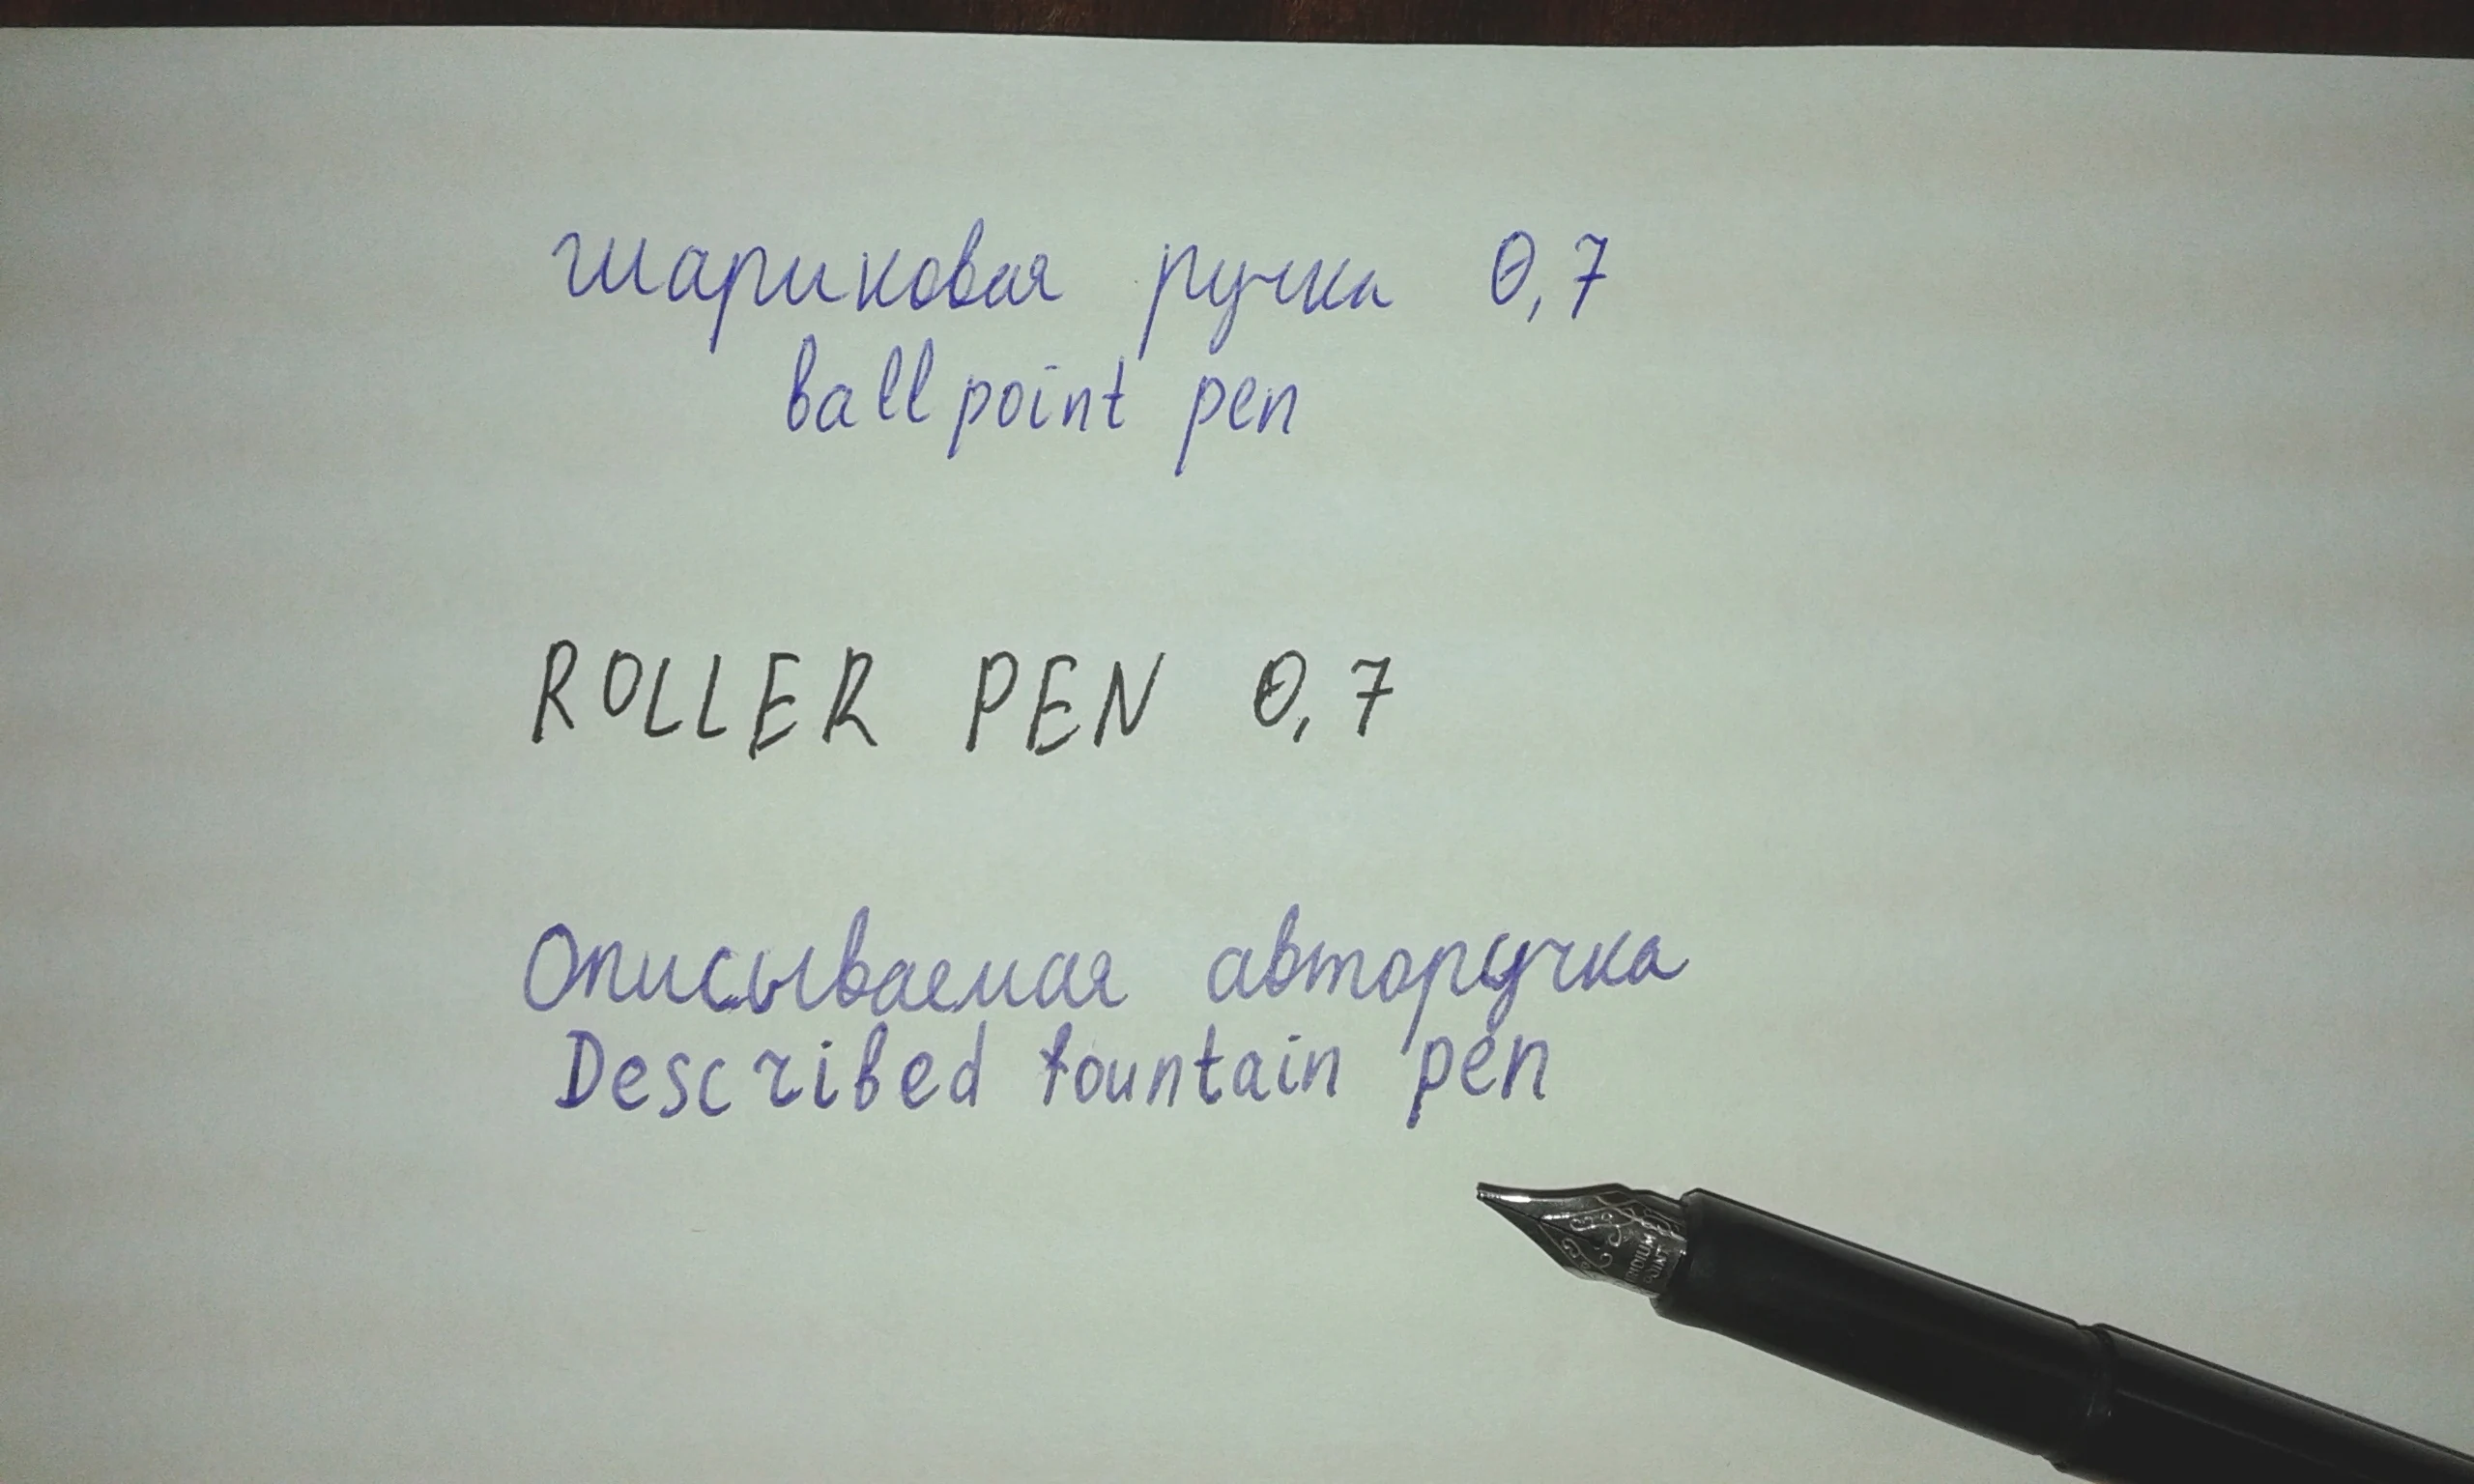 шариковая ручка 0,7
ball point pen
ROLLER PEN 0,7
Описываемая авторучка
Described fountain pen
IRIDIUM
POINT